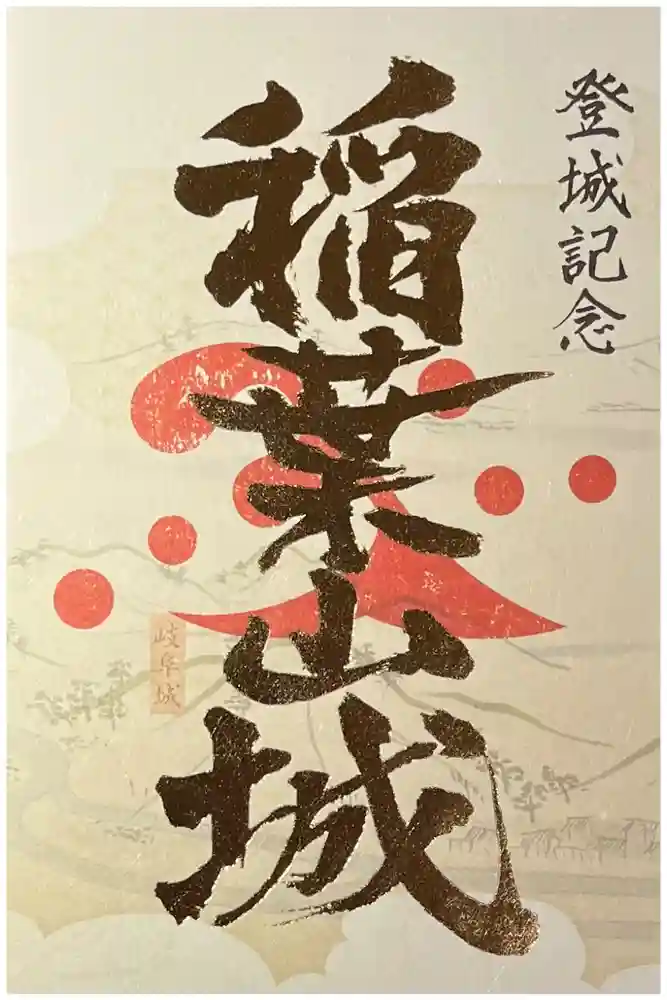 登城記念
稲葉山城
岐阜城